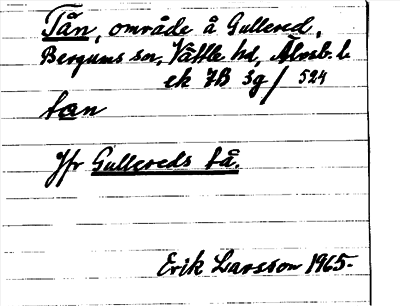 Tån, område å Gullered,
Bergums sn, Vättle hd, Älvsb. l.
ek 7B 3g / 524
tan
Jfr Gullereds tå.
Erik Larsson 1965.